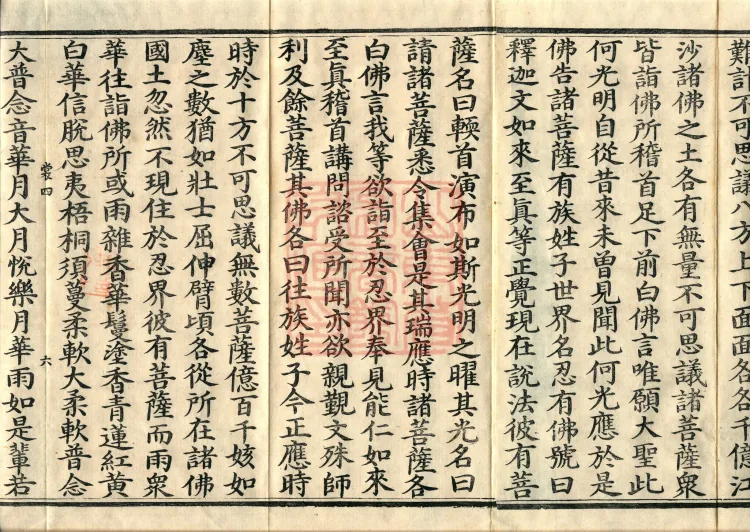 難計不可思議八方上下面面各各千億江
沙諸佛之土各有無量不可思議諸菩薩衆
皆詣佛所稽首足下前白佛言唯願大聖此
何光明自從昔來未曾見聞此何光應於是
佛告諸菩薩有族姓子世界名忍有佛號曰
釋迦文如來至真等正覺現在說法彼有菩
薩名曰輭首演布如斯光明之曜其光名曰
請諸菩薩悉令集會是其瑞應時諸菩薩各
白佛言我等欲詣至於忍界奉見能仁如來
至真稽首講問諮受所聞亦欲親覲文殊師
利及餘菩薩其佛各曰往族姓子今正應時
時於十方不可思議無數菩薩億百千姟如
塵之數猶如壯士屈伸臂頃各從所在諸佛
國土忽然不現住於忍界彼有菩薩而雨衆
華往詣佛所或雨雜香華鬘塗香青蓮紅黃
白華信脫思夷梧桐須蔓柔軟大柔軟普念
裳四 六
大普念音華月大月悅樂月華雨如是輩若